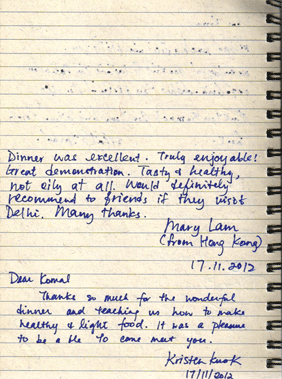 Dinner was excellent. Truly enjoyable!
Great demonstration. Tasty & healthy,
not oily at all. Would definitely
recommend to friends if they visit
Delhi. Many thanks.
Mary Lam
(from Hong Kong)
17.11.2012
Dear Komal
Thanks so much for the wonderful
dinner and teaching us how to make
healthy & light food. It was a pleasure
to be able to come meet you.
Kristen Kwok
17/11/2012